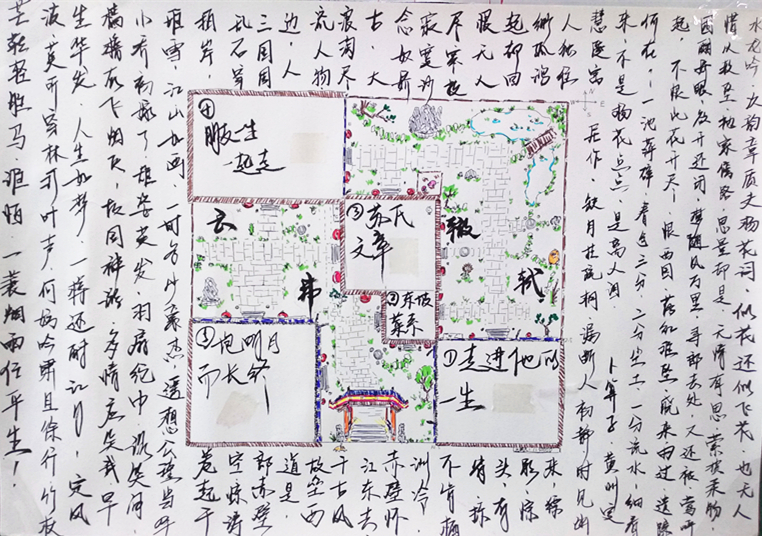 水龙吟·次韵章质夫杨花词 似花还似飞花，也无人
惜从教坠抛家傍路，思量却是，无情有思。萦损柔肠，
困酣娇眼，欲开还闭，梦随风万里，寻郎去处，又还被莺呼
起，不恨此花开尽，恨西园，落红难缀。晓来雨过，遗踪
何在，一池萍碎，春色三分，二分尘土，一分流水，细看
来，不是杨花点点，是离人泪 卜算子，黄州定
慧院寓居作 缺月挂疏桐，漏断人初静，时见幽
人独往来，缥
缈孤鸿影，惊
起却回头，有
恨无人省，拣
尽寒枝不肯栖
寂寞沙洲冷
念奴娇 赤壁怀
古，大江东去，
浪淘尽千古风
流人物，故垒西
边，人道是，
三国周郎赤壁
乱石穿空惊涛
拍岸，卷起千
堆雪，江山如画，一时多少豪杰，遥想公瑾当年
小乔初嫁了，雄姿英发，羽扇纶巾，谈笑间，
樯橹灰飞烟灭，故国神游，多情应笑我，早
生华发，人生如梦，一尊还酹江月，定风
波，莫听穿林打叶声，何妨吟啸且徐行，竹杖
芒鞋轻胜马，谁怕，一蓑烟雨任平生！
①走进他的
一生
②东坡
菜系
③苏氏
文章
④
朋友生
一起走
⑤抱明月
而长终
云
辙
轼